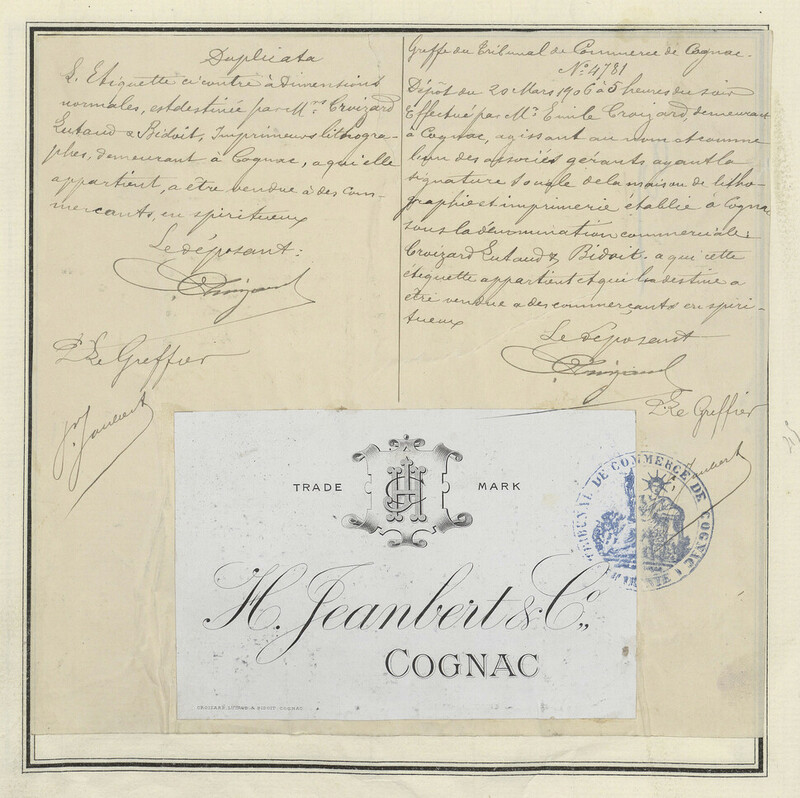 Duplicata
L'Etiquette ci contre à dimensions
normales, est destinée par M.rs Croizard
Lutaud & Bidoit, Imprimeurs lithogra-
phes, demeurant à Cognac, a qui elle
appartient, a être vendue à des com-
mercants, en spiritueux
Le déposant:
Croizard
P. Le Greffier
Greffe du Tribunal de Commerce de Cognac.
N.º 4781
Dépôt du 20 Mars 1906 à 5 heures du soir
Effectué par M.r Emile Croizard, demeurant
à Cognac, agissant au nom et comme
l'un des associés gérants ayant la
signature sociale de la maison de litho-
graphie et imprimerie établie à Cognac
sous la dénomination commerciale:
Croizard Lutaud & Bidoit. a qui cette
étiquette appartient et qui la destine a
être vendue a des commerçants en spiri-
tueux
Le déposant
Croizard
P. Le Greffier
TRADE MARK
H. Jeanbert & Cº,,
COGNAC
CROIZARD, LUTAUD, & BIDOIT _ COGNAC
TRIBUNAL DE COMMERCE DE COGNAC